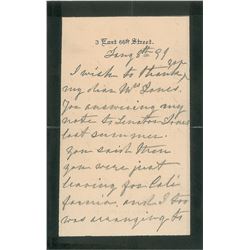 3 East 66th Street.
Jany 8th 99
I wish to thank you
my dear Mrs Jones
for answering my
note to Senator Jones
last summer.
you said then
you were just
leaving for Cali
fornia, and I too
was arranging to